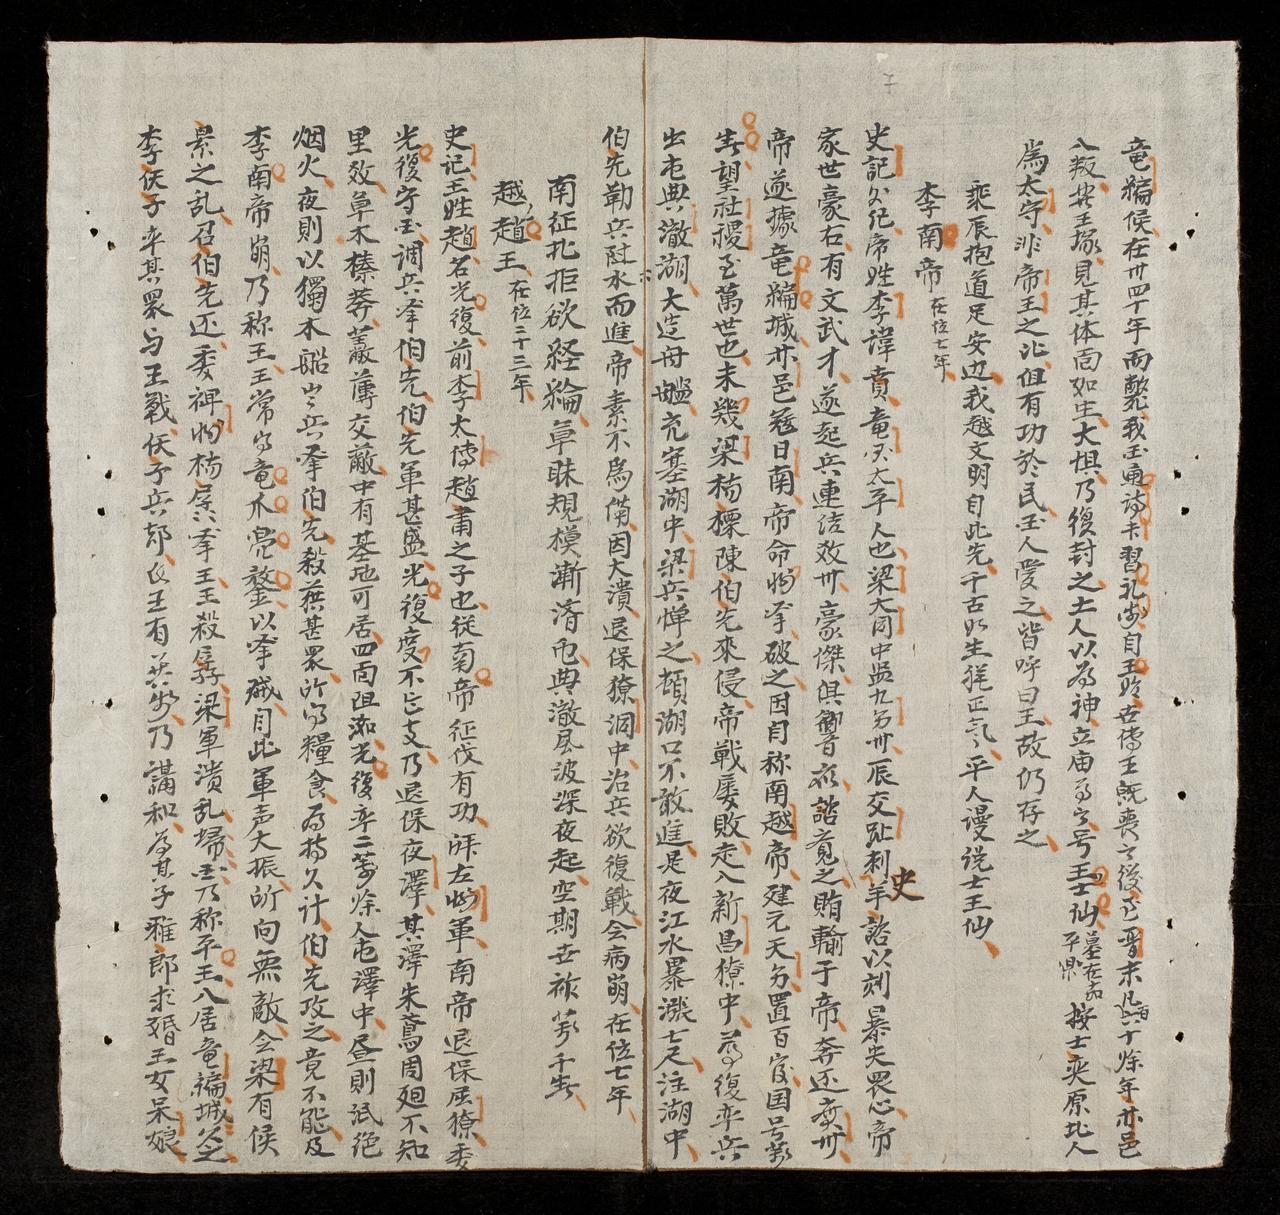 竜編侯在卅四十年而薨我国通詩书習礼乐自王始世傳王既喪之後至晋末凡百六十余年亦邑
入叛共王塚見其体面如生大惧乃復封之土人以為神立庙为之号王士仙墓在加平県按士燮原北人
為太守非帝王之比但有功於民国人愛之皆呼曰王故仍存之
乘辰抱道足安边我越文明自此先千古如生猶正氣平人谩说士王仙
李南帝在位七年
史記外纪帝姓李諱賁竜兴太平人也梁大同中监九务州辰交趾刺史諮以刻暴失衆心帝
家世豪右有文武才遂起兵連结数州豪傑俱响音应諮覔之賄輸于帝奔还廣州
帝遂據竜編城亦邑寇日南帝命将击破之因自称南越帝建元天务置百官国号萬
春望社稷至萬世也未幾梁杨摽陳伯先來侵帝戰屡敗走入新昌獠中为復率兵
出屯典澈湖大造舟艦充塞湖中梁兵惮之頓湖口不敢進是夜江水暴漲七尺注湖中
伯先勒兵赴水而進帝素不為俻因大潰退保獠洞中治兵欲復戰会病崩在位七年
南征北拒欲経綸草昧規模漸濟屯典澈风波深夜起空期世祚萬千春
越趙王在位二十三年
史记王姓趙名光復前李太傅趙肅之子也従南帝征伐有功拜左将軍南帝退保屈獠委
光復守国調兵击伯先伯先軍甚盛光復度不能支乃退保夜澤其澤朱鳶周廻不知
里数草木榛莽叢薄交蔽中有基地可居四面阻洳光復率二萬余人屯澤中昼則泯絕
烟火夜則以獨木船出兵击伯先殺获甚衆所得糧食为持久计伯先攻之竟不能及
李南帝崩乃称王王常得竜爪兜鍪以击贼自此軍声大振所向無敵会梁有侯
景之乱召伯先还委裨将杨孱击王王殺孱梁軍潰乱掃国乃称平王入居竜編城久之
李伕子率其眾与王戰伕子兵却以王有異術乃講和为其子雅郎求婚王女杲娘
史